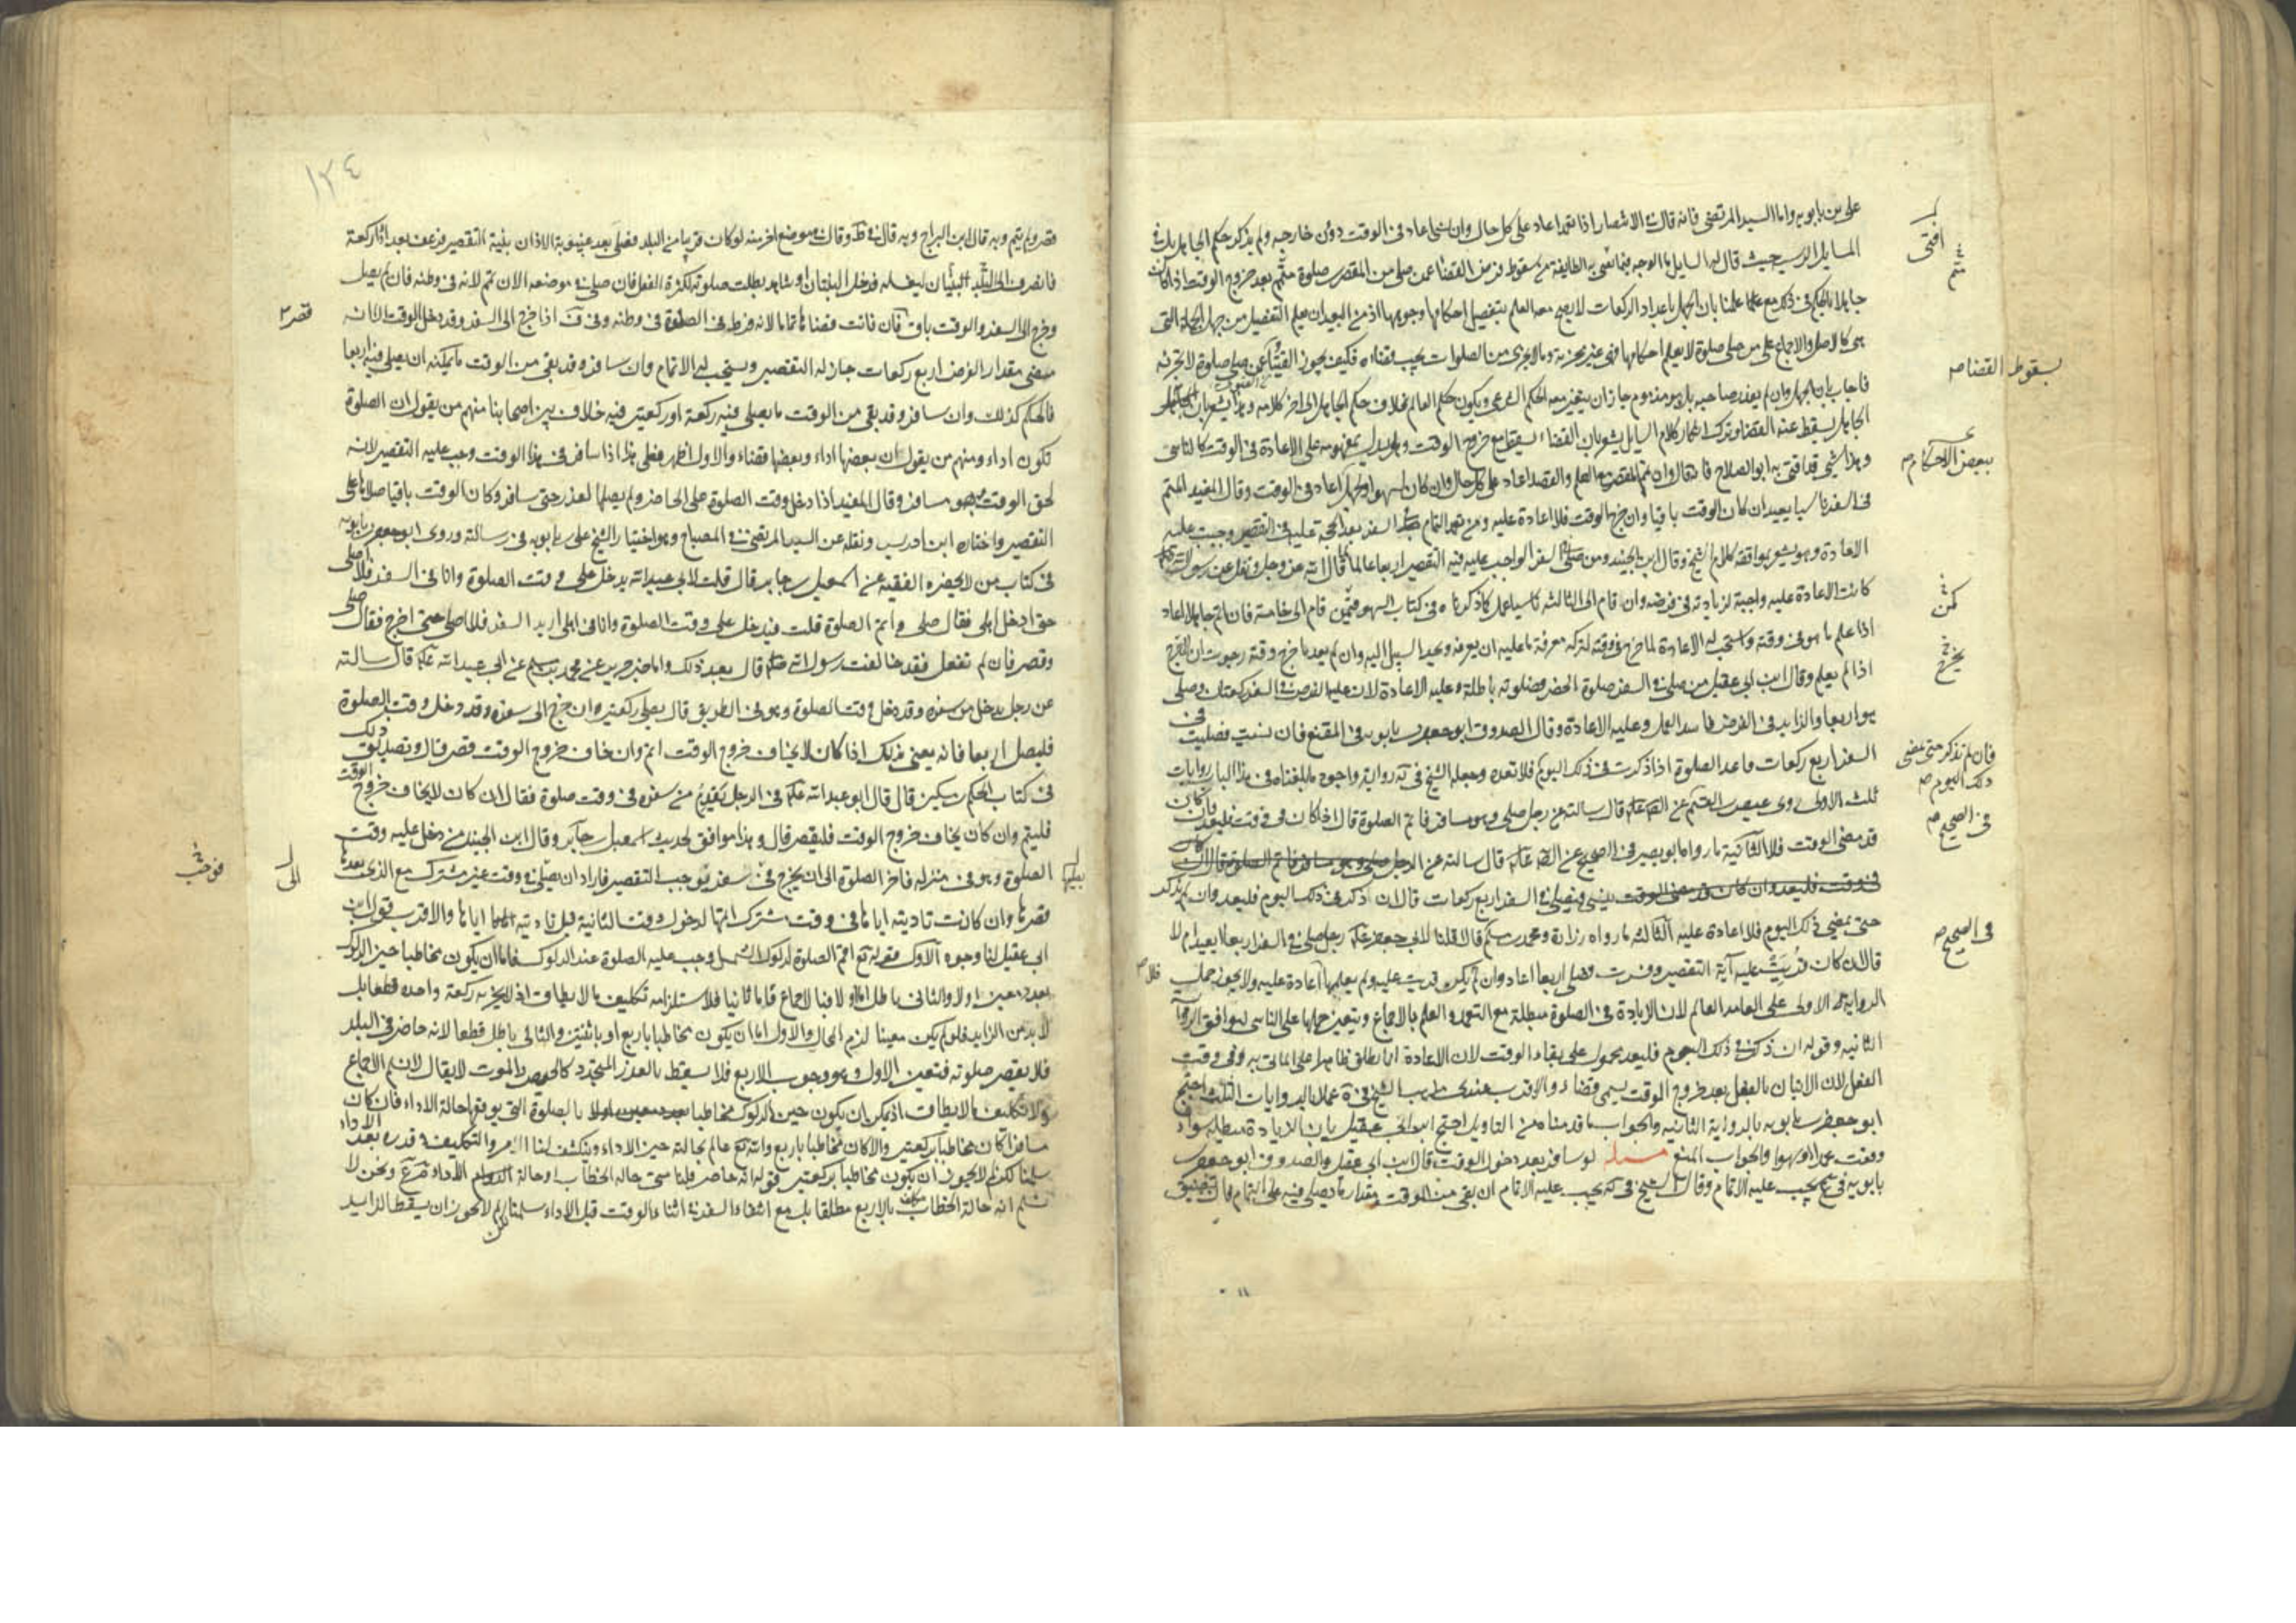 على بن بابويه واما السيد المرتضى فانه قال في الانتصار اذا تعمد اعاد على كل حال وان نسى اعاد فى الوقت دون خارجه ولم يذكر حكم الجاهل بل في
المسايل الرسيه حيث قال له السايل ما الوجه فيما تفتى به الطايفة من سقوط فرض القضا عمن صلى من المقصرين صلوة متمم بعد خروج الوقت اذا كان
جاهلا بالحكم فى ذلك مع علمنا بان الجهل باعداد الركعات لا يصح معه العلم بتفصيل احكامها ووجوهها اذ من البعيد ان يعلم التفصيل من جهل الجملة التى
هى كالاصل والاجماع على من صلى صلوة لا يعلم احكامها فهى غير مجزية وما لا يجزى من الصلوات يجب قضاءه فكيف يجوز الفتيا عن صلى صلوة لا تجزئه
بسقوط القضا صح
فاجاب بان الجهل وان لم يعذر صاحبه بل هو مذموم جاز ان يتغير معه الحكم الشرعى ويكون حكم العالم بخلاف حكم الجاهل الى اخر كلامه وهذا يشعر بان
الجاهل يسقط عنه القضا وترك انكار كلام السايل يشعر بان القضاء يسقط مع خروج الوقت ويدل بمفهومه على الاعادة فى الوقت كالناسى
ببعض الاحكام صح
وهذا شىء قد افتى به ابو الصلاح فانه قال وان تمم المقصر مع العلم والقصد اعاد على كل حال وان كان لسهو او جهل اعاد فى الوقت وقال المفيد المتمم
فى السفر ناسيا يعيد ان كان الوقت باقيا وان خرج الوقت فلا اعادة عليه ومن تعمد التمام فى السفر بعد الحجة عليه فى التقصير وجبت عليه
الاعادة وهو يشعر بموافقة كلام الشيخ وقال ابن الجنيد ومن صلى فى السفر الواجب عليه فيه التقصير اربعا عالما بما قال الله عز وجل ونقل عن رسول الله
كانت الاعادة عليه واجبة لزيادته فى فرضه وان قام الى الثالثة ناسيا عمل كما ذكرناه فى كتاب السهو فيمن قام الى خامسة فان اتم جاهلا اعاد
اذا علم ما هو فى وقته واستحب له الاعادة لما خرج وقته لتركه معرفة ما عليه ان يعرفه ويجد السبيل اليه وان لم يعد ما خرج وقته رجوت ان
اذا لم يعلم وقال ابن ابى عقيل من صلى فى السفر صلوة الحضر فصلوته باطلة وعليه الاعادة لان عليه الفرض فى السفر ركعتان وصلى
هو اربعا والزايد فى الفرض فاسد العمل وعليه الاعادة وقال الصدوق ابو جعفر بن بابويه فى المقنع فان نسيت فصليت فى
السفر اربع ركعات فاعد الصلوة اذا ذكرت فى ذلك اليوم فلا تعده وجعله الشيخ فى يه رواية واجود ما بلغناه فى هذا الباب روايات
فان لم تذكر حتى يمضى
ذلك اليوم صح
ثلث الاولى روى عيص بن القسم عن الصادق قال سالته عن رجل صلى وهو مسافر فاتم الصلوة قال ان كان فى وقت فليعد وان كان
فى الصحيح صح
قد مضى الوقت فلا الثانية ما رواه ابو بصير فى الصحيح عن الصادق قال سالته عن الرجل
ينسى فيصلى فى السفر اربع ركعات قال ان ذكر فى ذلك اليوم فليعد وان لم يذكر
حتى يمضى ذلك اليوم فلا اعادة عليه الثالثة ما رواه زرارة ومحمد بن مسلم قالا قلنا لابى جعفر رجل صلى فى السفر اربعا ايعيد ام لا
فى الصحيح صح
قال ان كان قريت عليه آية التقصير وفسرت فصلى اربعا اعاد وان لم يكن قريت عليه ولم يعلمها اعادة عليه ولا يجوز حمل
فلا صح
الرواية الاولى على العامد العالم لان الزيادة فى الصلوة مبطلة مع التعمد والعلم بالاجماع ويتعين حملها على الناسى ليوافق الرواية
الثانيه وقوله ان ذكر فى ذلك اليوم فليعد محمول على بقاء الوقت لان الاعادة انما يطلق ظاهرا على الماتى به فى وقت
الفعل لان الاتيان بالفعل بعد خروج الوقت يسمى قضاء والاقرب عندى مذهب الشيخ فى يه عملا بالروايات الثلث احتج
ابو جعفر بن بابويه بالرواية الثانيه والجواب ما قدمناه من التاويل احتج ابن ابى عقيل بان الزيادة مبطله سواء
وقعت عمدا او سهوا والجواب المنع مسئله لو سافر بعد دخول الوقت قال ابن ابى عقيل والصدوق ابو جعفر بن
بابويه فى يجب عليه الاتمام وقال الشيخ فى يه يجب عليه الاتمام ان بقى من الوقت مقدار ما يصلى فيه على التمام فان تضيق
١٣٤
قصر ولم يتم وبه قال ابن البراج وبه قال فى ط وقال فى موضع اخر منه لو كان قريبا من البلد فصلى بعد غيبوبة الاذان بنية التقصير فرعف بعد اذا ركعة
فانصرف الى البنيان ليغسله فدخل البنيان او شاهده بطلت صلوته لكثرة الفعل فان صلى فى موضعه الان تمم لانه فى وطنه فان لم يصل
وخرج الى السفر والوقت باق فان فاتت قضاها تماما لانه فرط فى الصلوة فى وطنه وفى ف اذا خرج الى السفر وقد دخل الوقت الا انه
قصر
مضى مقدار الفرض اربع ركعات جاز له التقصير ويستحب له الاتمام وان سافر وقد بقى من الوقت ما يمكنه ان يصلى فيه اربعا
فالحكم كذلك وان سافر وقد بقى من الوقت ما يصلى فيه ركعة او ركعتين فيه خلاف بين اصحابنا منهم من يقول ان الصلوة
تكون اداء ومنهم من يقول ان بعضها اداء وبعضها قضاء والاول اظهر فعلى هذا اذا سافر فى هذا الوقت وجب عليه التقصير لانه
لحق الوقت وهو مسافر وقال المفيد اذا دخل وقت الصلوة على الحاضر ولم يصلها لعذر حتى سافر وكان الوقت باقيا صلاها على
التقصير واختاره ابن ادريس ونقله عن السيد المرتضى فى المصباح وهو اختيار الشيخ على بن بابويه فى رسالته وروى ابو جعفر بن بابويه
فى كتاب من لا يحضره الفقيه عن اسمعيل بن جابر قال قلت لابى عبد الله يدخل على وقت الصلوة وانا فى السفر فلا اصلى
حتى ادخل اهلى فقال صل واتم الصلوة قلت فيدخل على وقت الصلوة وانا فى اهلى اريد السفر فلا اصلى حتى اخرج فقال صل
وقصر فان لم تفعل فقد خالفت رسول الله قال بعد ذلك واما خبر حريز عن محمد بن مسلم عن ابى عبد الله قال سالته
عن رجل يدخل من سفره وقد دخل وقت الصلوة وهو فى الطريق قال يصلى ركعتين وان خرج الى سفره وقد دخل وقت الصلوة
فليصل اربعا فانه يعنى بذلك اذا كان لا يخاف خروج الوقت اتم وان خاف خروج الوقت قصر قال وتصديق ذلك
فى كتاب الحكم بن مسكين قال قال ابو عبد الله فى الرجل يقدم من سفره فى وقت صلوة فقال ان كان لا يخاف خروج الوقت
فليتم وان كان يخاف خروج الوقت فليقصر قال وهذا موافق لحديث اسمعيل بن جابر وقال ابن الجنيد من دخل عليه وقت
الصلوة وهو فى منزله فاخر الصلوة الى ان يخرج فى سفر يوجب التقصير فاراد ان يصليها فى وقت غير مشترك مع الذى بعدها
قصرها وان كانت تاديته اياها فى وقت مشترك اتمها لدخول وقت الثانية قبل تاديته اياها والاقرب قول ابن
ابى عقيل لنا وجوه الاول قوله تع اقم الصلوة لدلوك الشمس وجب عليه الصلوة عند الدلوك فاما ان يكون مخاطبا حين الدلوك
بعدد معين اولا والثانى باطل اما اولا فبالاجماع واما ثانيا فلاستلزامه تكليف ما لا يطاق اذ لا يجزيه ركعة واحده قطعا بل
لا بد من الزايد فلو لم يكن معينا لزم المحال والاول اما ان يكون مخاطبا باربع او باثنتين والثانى باطل قطعا لانه حاضر فى البلد
فلا يقصر صلوته فتعين الاول وهو وجوب الاربع فلا يسقط بالعذر المتجدد كالحيض والموت لا يقال لا نسلم الاجماع
ولا تكليف ما لا يطاق اذ يمكن ان يكون حين الدلوك مخاطبا بالصلوة التى يوقعها حالة الاداء فان كان
مسافرا كان مخاطبا بركعتين والا كان مخاطبا باربع والله تع عالم بحالته حين الاداء وينكشف لنا الامر والتكليف وقدره بعد الاداء
سلمنا لكن لم لا يجوز ان يكون مخاطبا بركعتين قوله انه حاضر قلنا متى حالة الخطاب او حالة الاداء ونحن لا
نسلم انه حالة الخطاب مكلف بالاربع مطلقا بل مع انتفاء السفر فى اثناء الوقت قبل الاداء سلمنا لكن لم لا يجوز ان يسقط الزايد